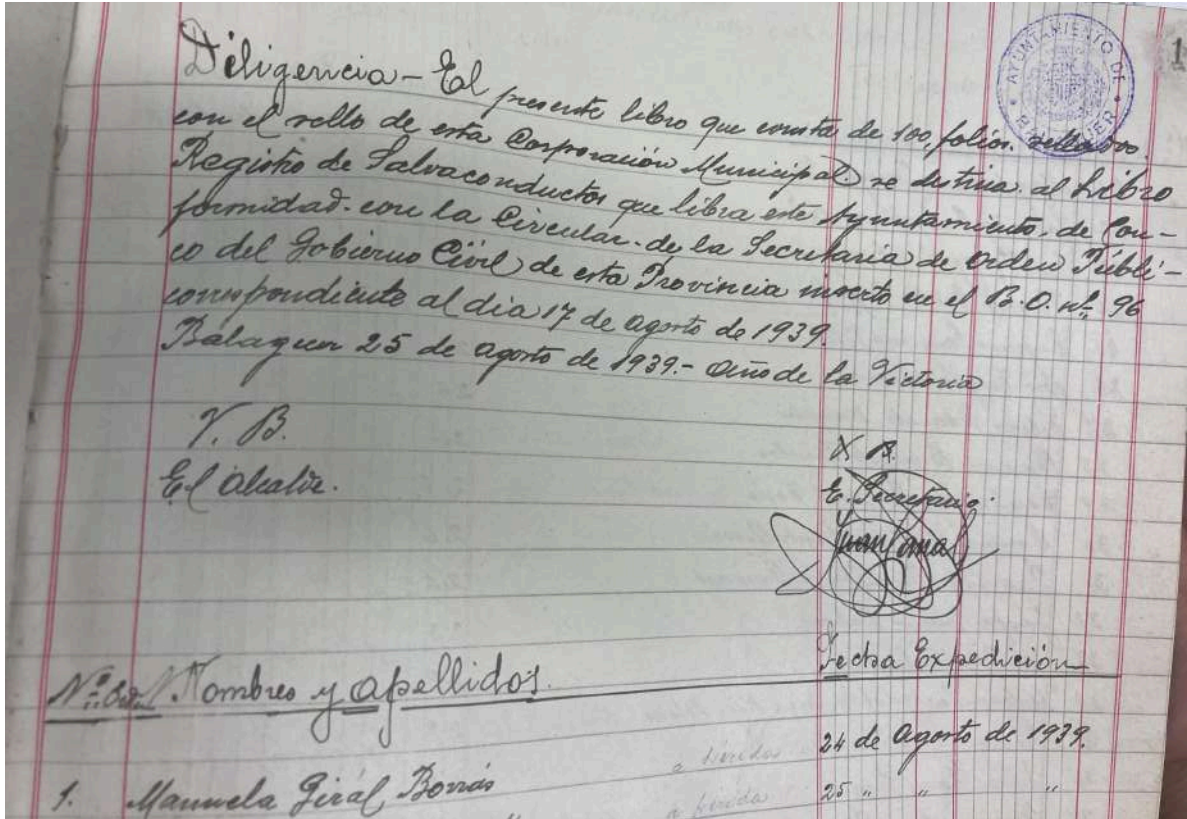 AYUNTAMIENTO DE BALAGUER
1
Diligencia - El presente libro que consta de 100, folios. sellados.
con el sello de esta Corporación Municipal se destina al Libro
Registro de Salvaconductos que libra este Ayuntamiento. de Con-
formidad. con la Circular. de la Secretaria de Orden Públi-
co del Gobierno Civil de esta Provincia inserto en el B.O. nº. 96
correspondiente al dia 17 de agosto de 1939.
Balaguer 25 de agosto de 1939.- Año de la Victoria
V. B.
El Alcalde.
E. Secretario.
Nº. Nombres y apellidos.
Fecha Expedición
1. Manuela Girál Borrás
a lérida
24 de Agosto de 1939.
a lérida
25 " " "